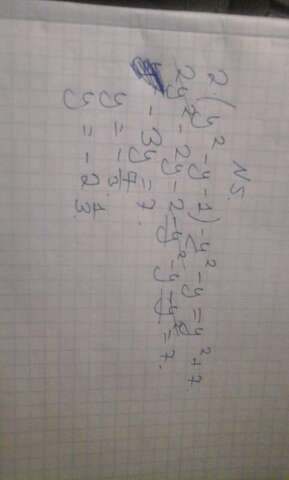 N5.
2·(y²-y-1)-y²-y=y²+7
2y²-2y-2-y²-y-y²=7.
-3y=7.
y=-7/3.
y=-2 1/3.